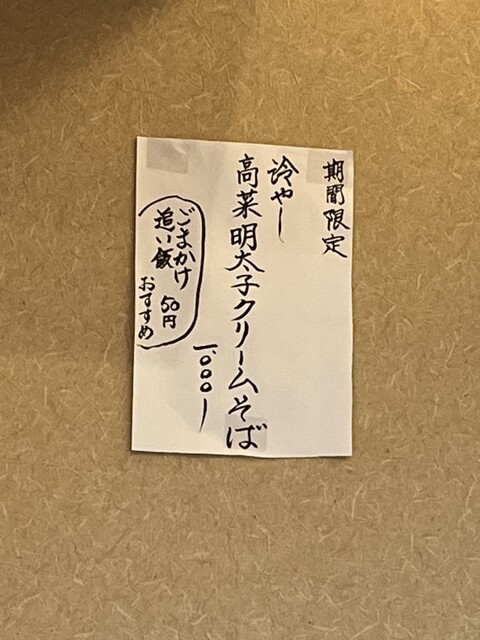 期間限定
冷やし
高菜明太子クリームそば
一、〇〇〇ー
ごまかけ
追い飯 50円
おすすめ